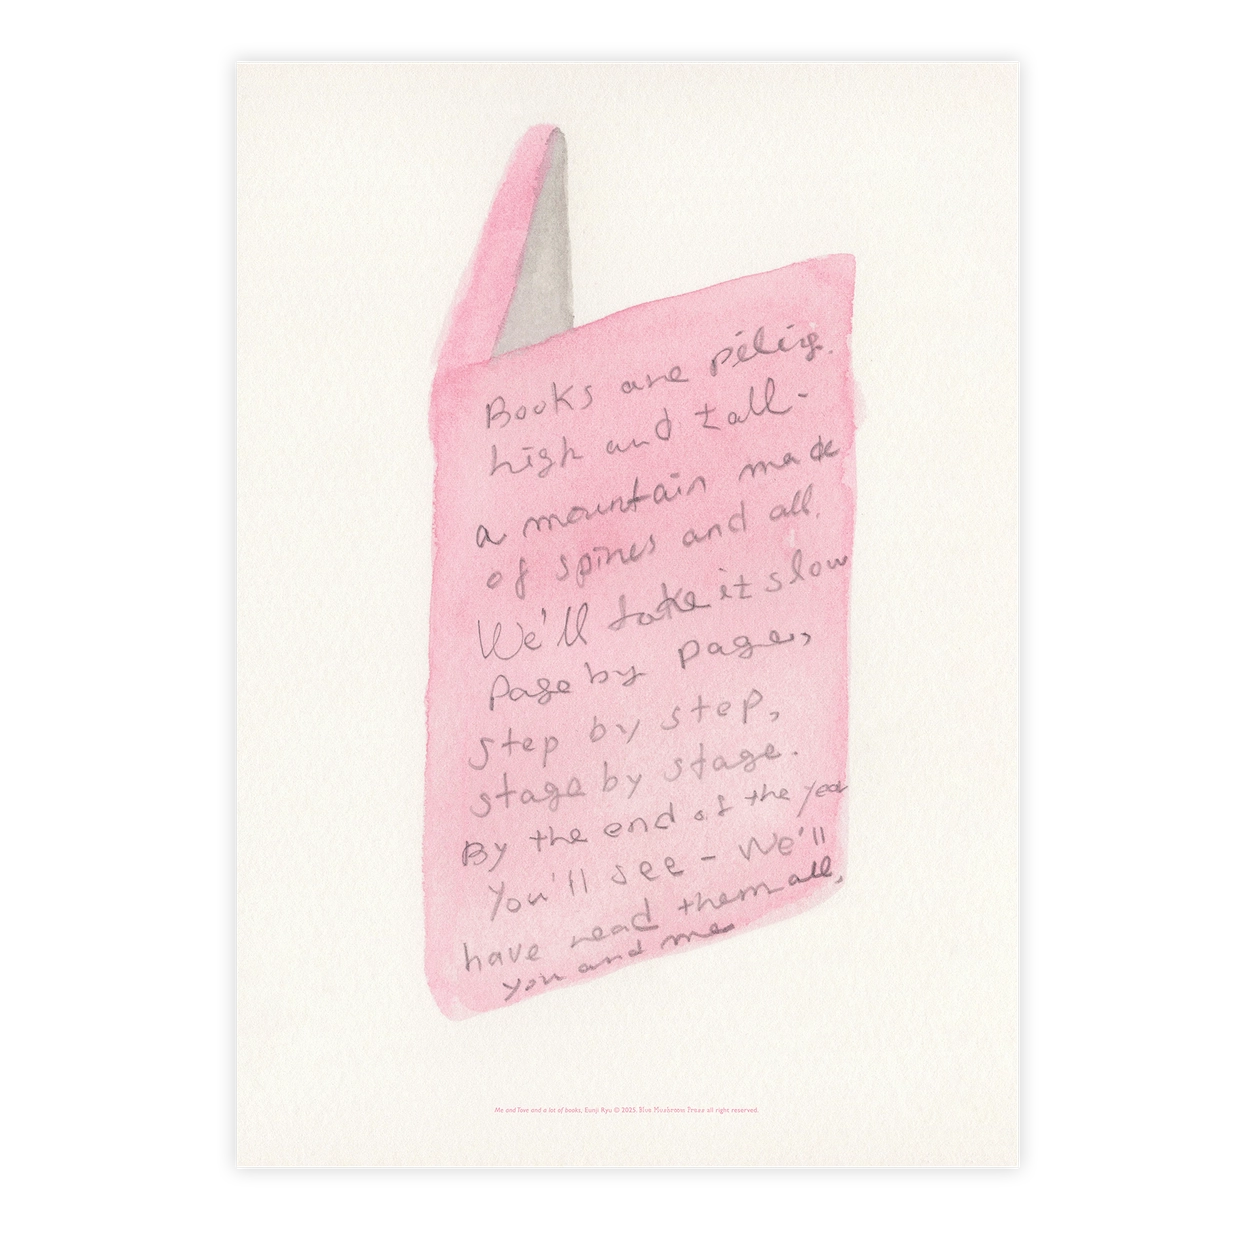 Books are pilig.
high and tall-
a mountain made
of spines and all.
We'll take it slow
Page by page,
step by step,
stage by stage.
By the end of the year
You'll see - We'll
have read them all,
you and me
Me and Tove and a lot of books, Eunji Ryu © 2025. Blue Mushroom Press all right reserved.